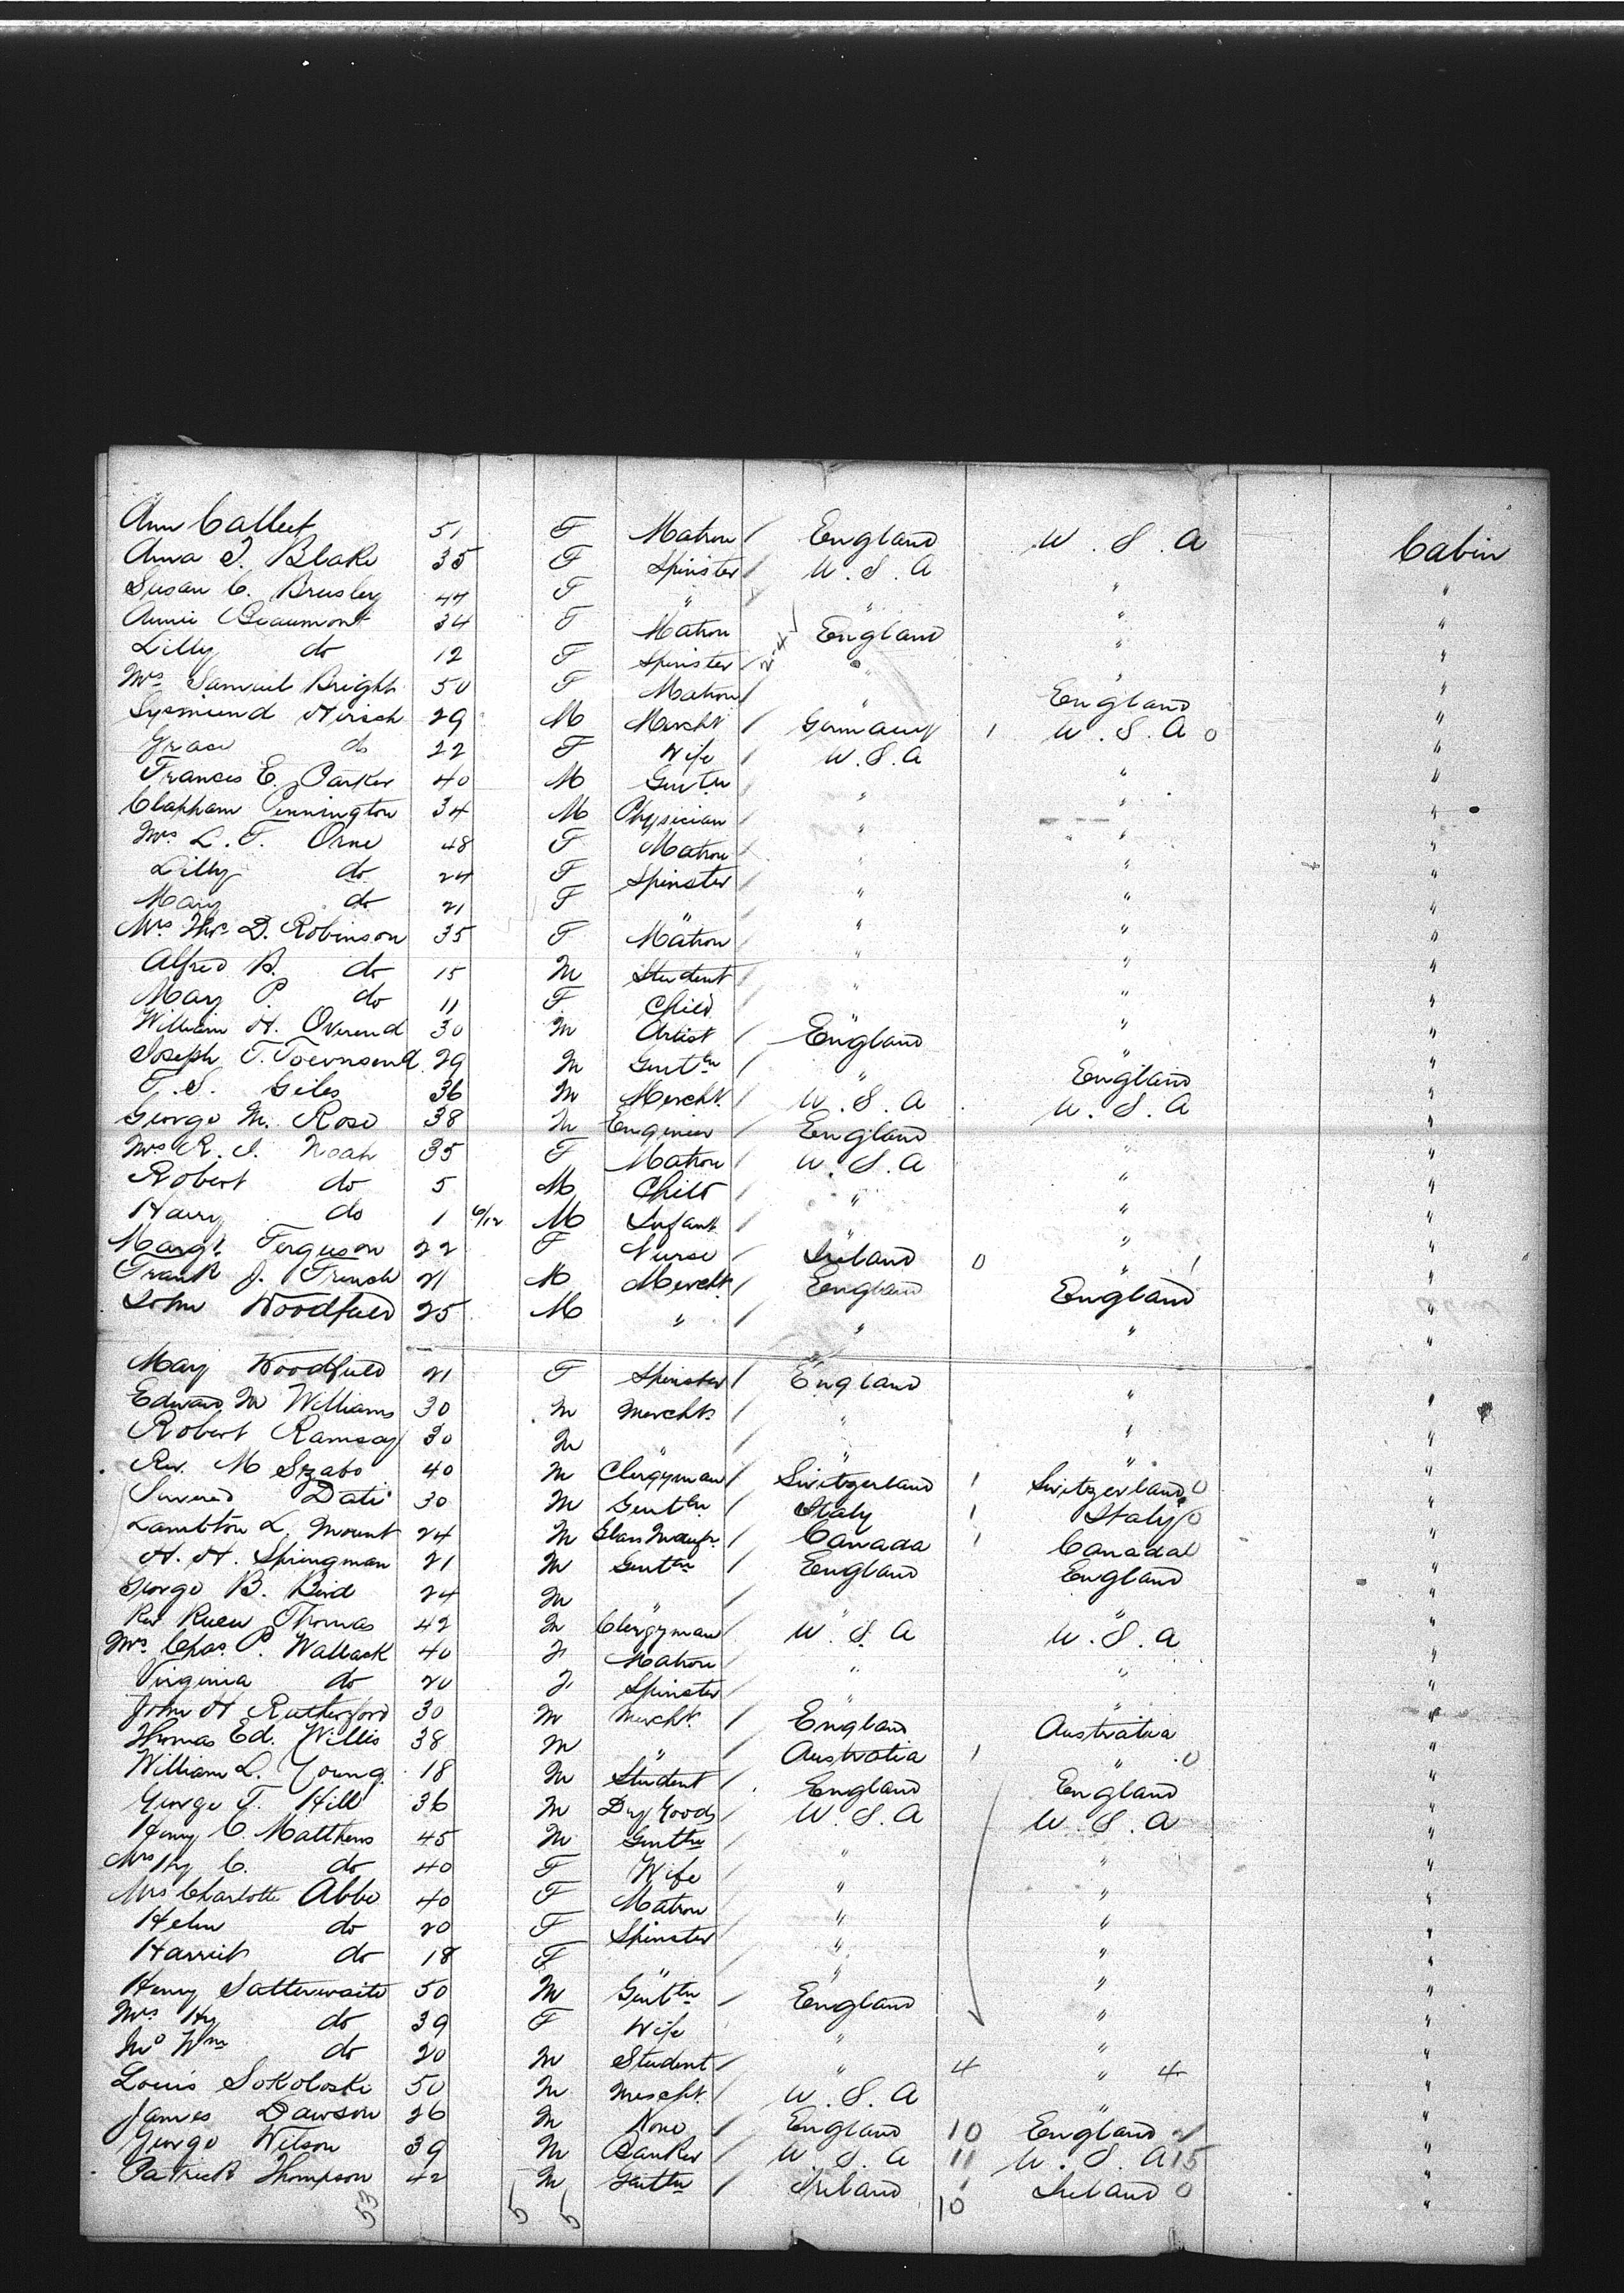 Ann Callect 51 F Matron / England U.S.A Cabin
Anna T. Blake 35 F Spinster / U.S.A " "
Susan C. Brusley 47 F " / " " "
Annie Beaumont 34 F Matron England " "
Lilly do 12 F Spinster / " " "
Mrs Samuel Bright 50 F Matron / " England "
Sysmund Hirsch 29 M Mercht / Germany 1 U.S.A 0 "
Grace do 22 F Wife / U.S.A " "
Frances E. Parker 40 M Gentln / " " "
Clapham Pennington 34 M Physician / " " "
Mrs L. T. Orne 48 F Matron / " " "
Lilly do 24 F Spinster / " " "
Mary do 21 F " / " " "
Mrs Thos D. Robinson 35 F Matron / " " "
Alfred B. do 15 M Student / " " "
Mary P. do 11 F Child / " " "
William H. Overend 30 M Artist / England " "
Joseph T. Townsend 29 M Gentln / " England "
T. S. Giles 36 M Mercht / U.S.A U.S.A "
George M. Rose 38 M Engineer / England " "
Mrs R. J. Noah 35 F Matron / U.S.A " "
Robert do 5 M Child / " " "
Harry do 1 6/12 M Infant / " " "
Margt Ferguson 22 F Nurse / Ireland 0 " 1 "
Frank J. French 21 M Mercht / England England "
John Woodfield 25 M " / " " "
Mary Woodfield 21 F Spinster / England " "
Edward M Williams 30 M Mercht / " " "
Robert Ramsay 30 M " / " " "
Rev. M Szabo 40 M Clergyman / Switzerland 1 Switzerland 0 "
Dati 30 M Gentln / Italy 1 Italy 0 "
Lambton L. Mount 24 M Glass Manfr / Canada 1 Canada 0 "
H. H. Springman 21 M Gentln / England England "
George B. Bird 24 M " / " " "
Rev Ruen Thomas 42 M Clergyman / U.S.A U.S.A "
Mrs Chas. P. Wallack 40 F Matron / " " "
Virginia do 20 F Spinster / " " "
John H Rutherford 30 M Mercht / England Australia "
Thomas Ed. Willis 38 M " / Australia 1 " 0 "
William L. Young 18 M Student / England England "
George T. Hill 36 M Dry Goods / U.S.A U.S.A "
Henry C. Matthews 45 M Gentln / " " "
Mrs Hy C. do 40 F Wife / " " "
Mrs Charlotte Abbe 40 F Matron / " " "
Helen do 20 F Spinster / " " "
Harriet do 18 F " / " " "
Henry Satterwaite 50 M Gentln / England " "
Mrs Hy do 39 F Wife " " "
Wm do 20 M Student / " 4 " 4 "
Louis Sokoloski 50 M Mercht / U.S.A " "
James Dawson 26 M None / England 10 England 2 "
George Wilson 39 M Banker / U.S.A 11 U.S.A 15 "
Patrick Thompson 42 M Gentln / Ireland 1 Ireland 0 "
53 5 5 10